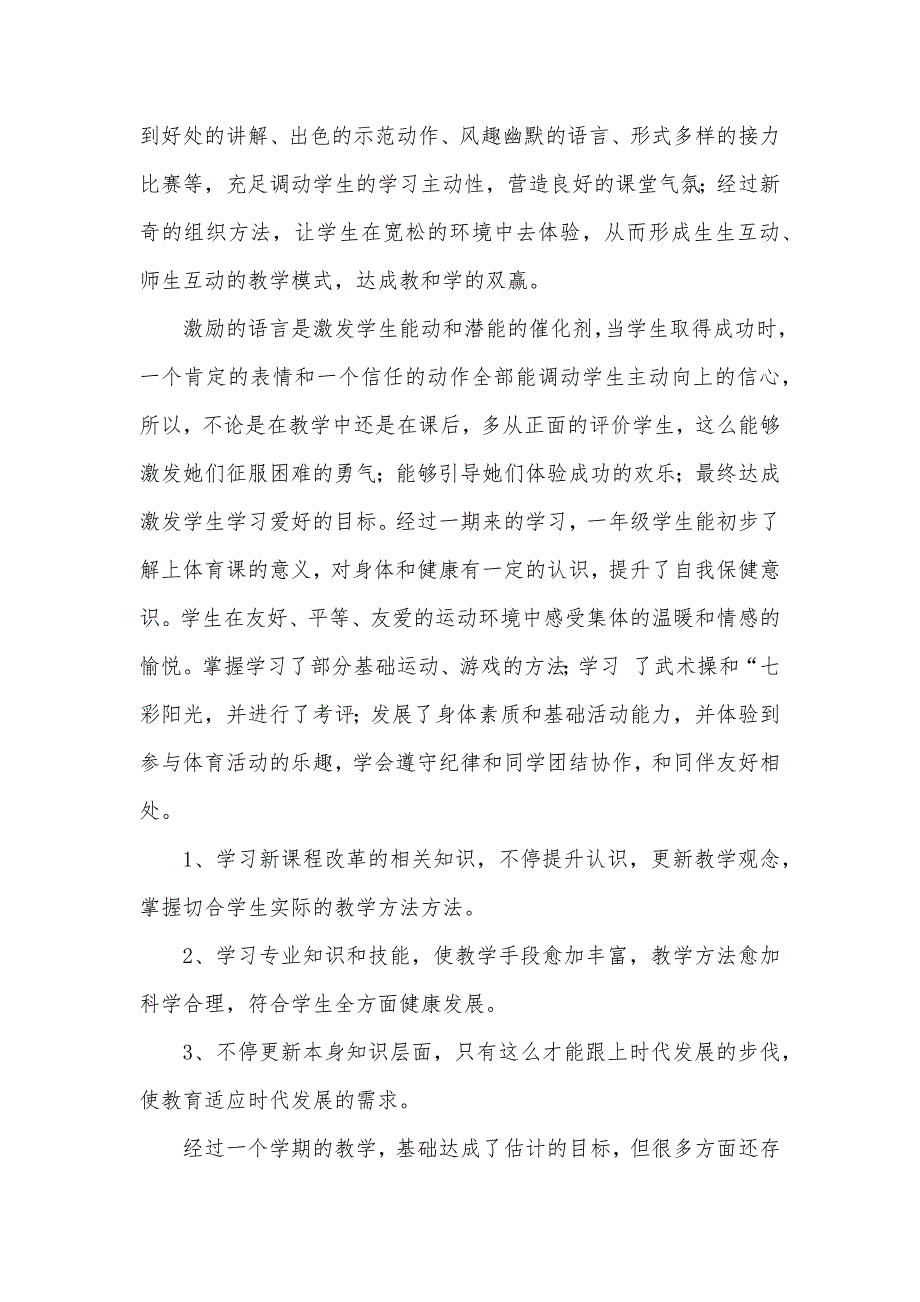 到好处的讲解、出色的示范动作、风趣幽默的语言、形式多样的接力
比赛等，充足调动学生的学习主动性，营造良好的课堂气氛；经过新
奇的组织方法，让学生在宽松的环境中去体验，从而形成生生互动、
师生互动的教学模式，达成教和学的双赢。
激励的语言是激发学生能动和潜能的催化剂，当学生取得成功时，
一个肯定的表情和一个信任的动作全部能调动学生主动向上的信心，
所以，不论是在教学中还是在课后，多从正面的评价学生，这么能够
激发她们征服困难的勇气；能够引导她们体验成功的欢乐；最终达成
激发学生学习爱好的目标。经过一期来的学习，一年级学生能初步了
解上体育课的意义，对身体和健康有一定的认识，提升了自我保健意
识。学生在友好、平等、友爱的运动环境中感受集体的温暖和情感的
愉悦。掌握学习了部分基础运动、游戏的方法；学习 了武术操和“七
彩阳光，并进行了考评；发展了身体素质和基础活动能力，并体验到
参与体育活动的乐趣，学会遵守纪律和同学团结协作，和同伴友好相
处。
1、学习新课程改革的相关知识，不停提升认识，更新教学观念，
掌握切合学生实际的教学方法方法。
2、学习专业知识和技能，使教学手段愈加丰富，教学方法愈加
科学合理，符合学生全方面健康发展。
3、不停更新本身知识层面，只有这么才能跟上时代发展的步伐，
使教育适应时代发展的需求。
经过一个学期的教学，基础达成了估计的目标，但很多方面还存